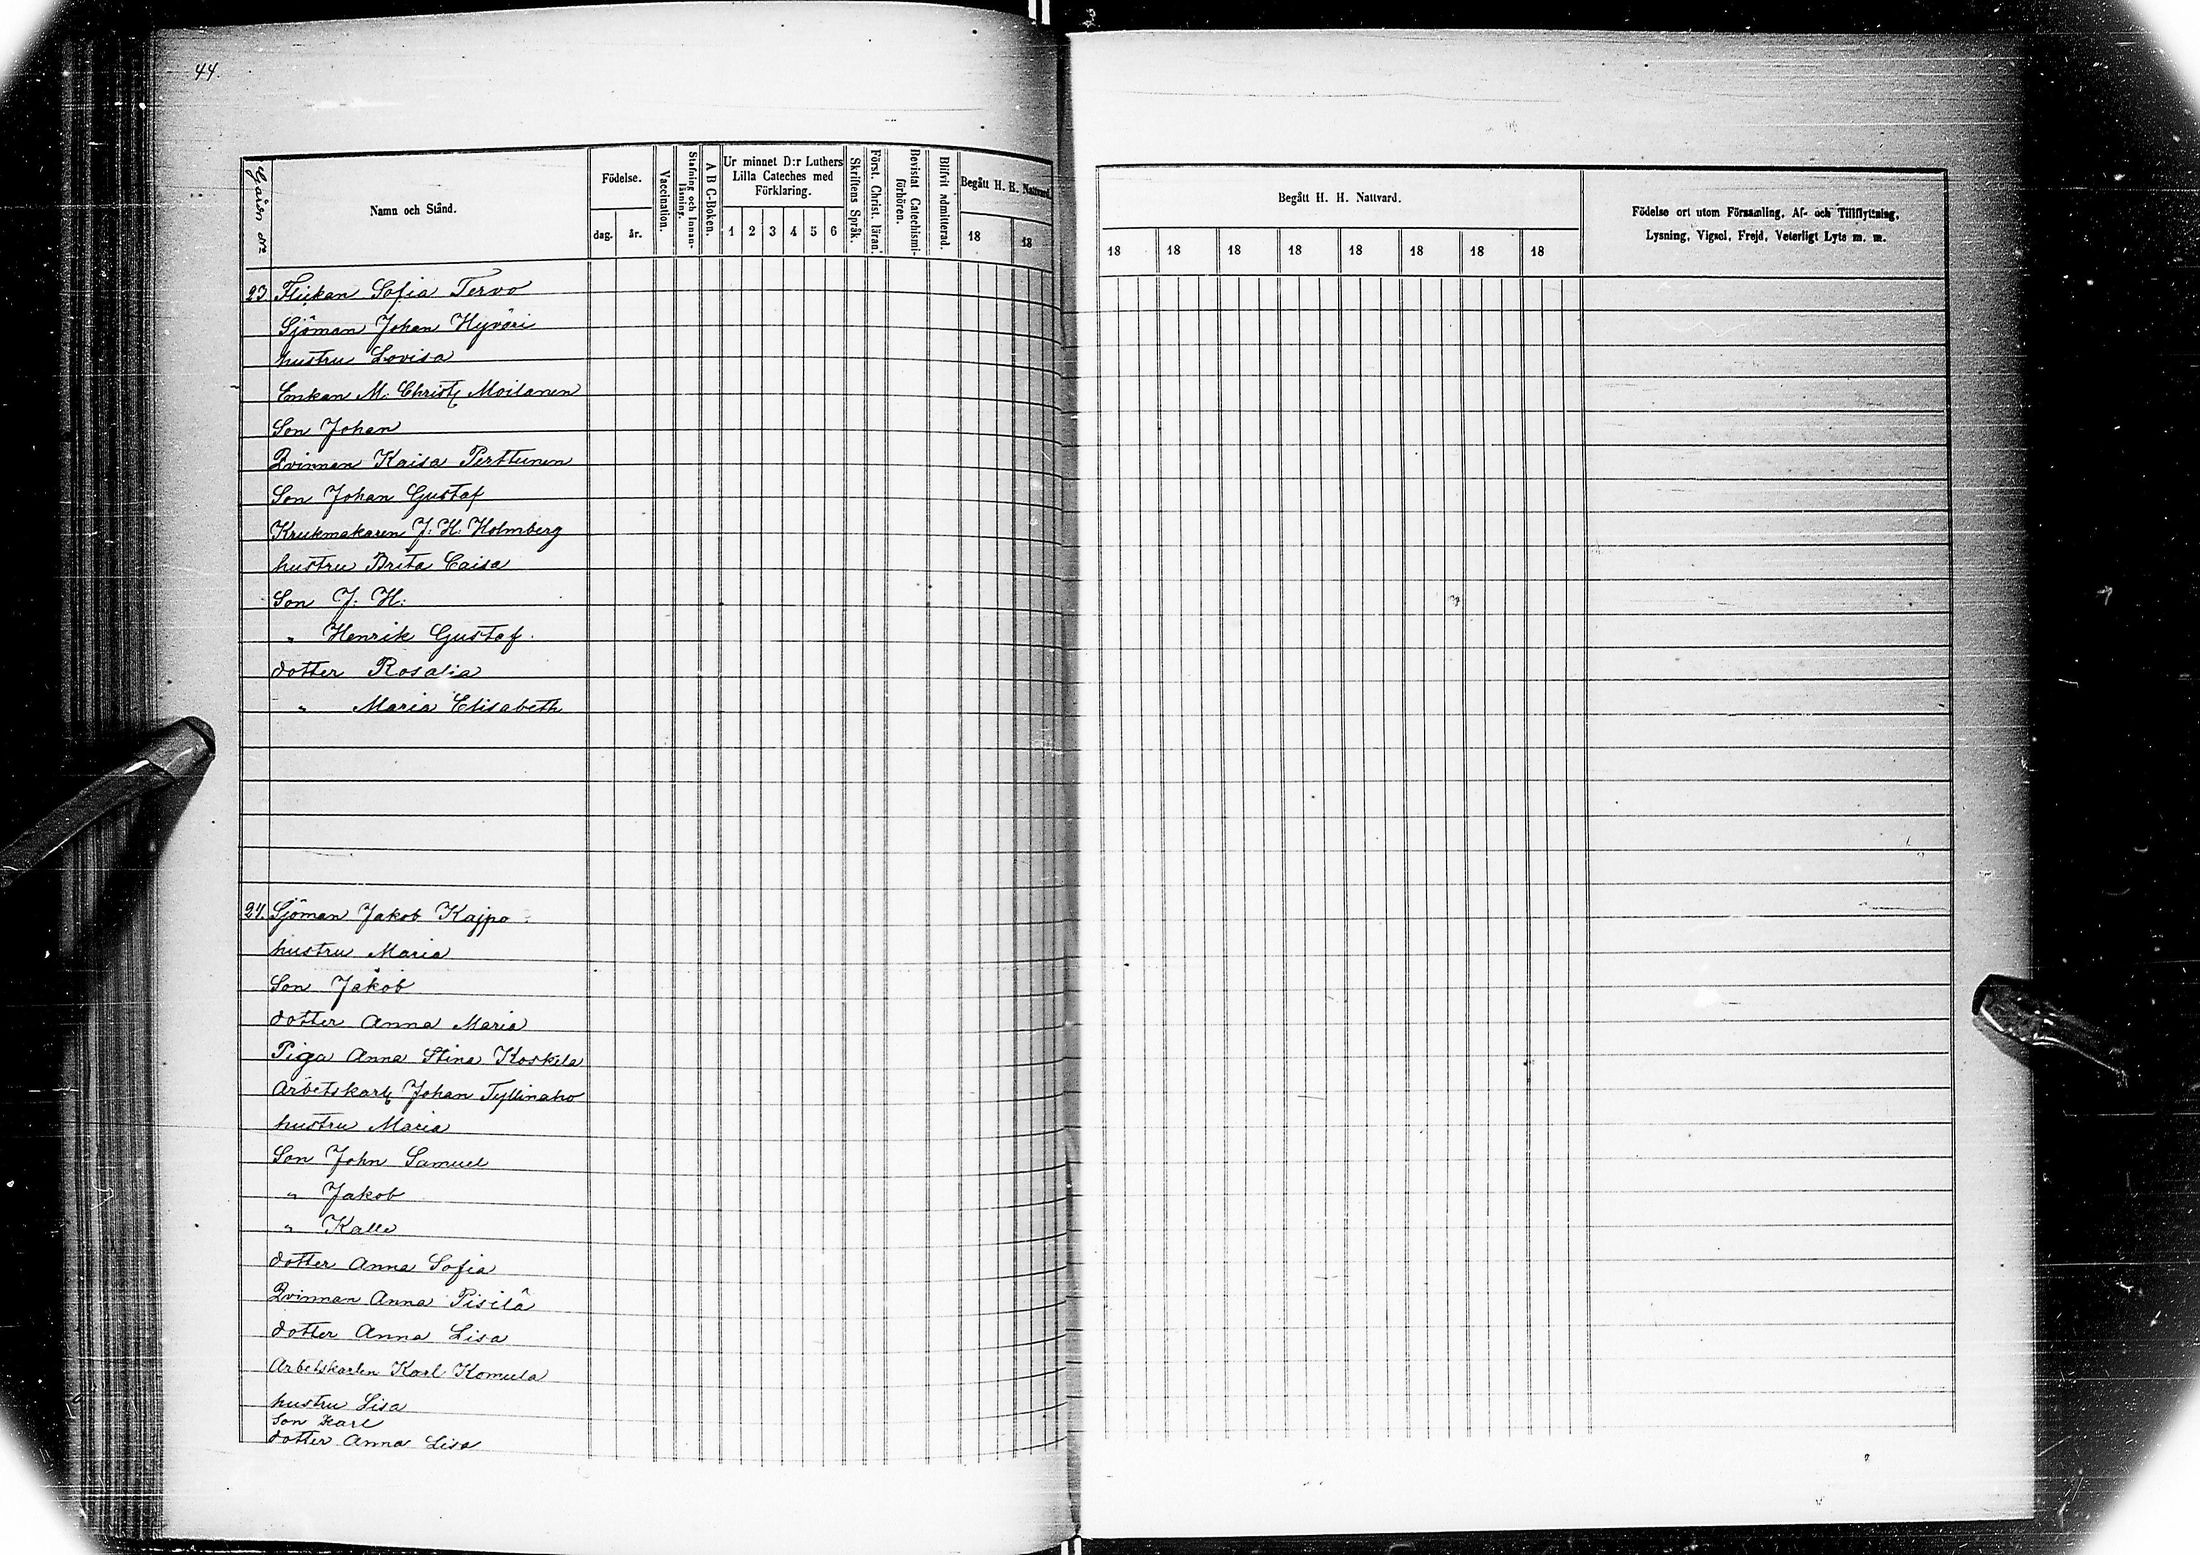 44.
Gården No
Namn och Stånd.
Födelse.
dag.
år.
Vaccination.
Stafning och Innan-
läsning.
A B C-Boken.
Ur minnet D:r Luthers
Lilla Cateches med
Förklaring.
1 2 3 4 5 6
Skriftens Språk.
Först. Christ. läran.
Bevistat Catechismi-
förhören.
Blifvit admitterad.
Begått H. H. Nattvard.
18 18
Begått H. H. Nattvard.
18 18 18 18 18 18 18 18
Födelse ort utom Församling, Af- och Tillflyttning,
Lysning, Vigsel, Frejd, Veterligt Lyte m. m.
23 Flickan Sofia Tervo
Sjöman Johan Hyvöri
hustru Lovisa
Enkan M. Christ Moilanen
Son Johan
Qvinnan Kaisa Perttunen
Son Johan Gustaf
Krukmakaren J. H. Holmberg
hustru Brita Caisa
Son J. H.
" Henrik Gustaf
dotter Rosalia
" Maria Elisabeth
24. Sjöman Jakob Kajpo
hustru Maria
Son Jakob
dotter Anna Maria
Piga Anna Stina Koskela
Arbetskarl Johan Tyllinaho
hustru Maria
Son John Samuel
" Jakob
" Kalle
dotter Anna Sofia
Qvinnan Anna Pisilä
dotter Anna Lisa
Arbetskarlen Karl Komula
hustru Lisa
Son Karl
dotter Anna Lisa